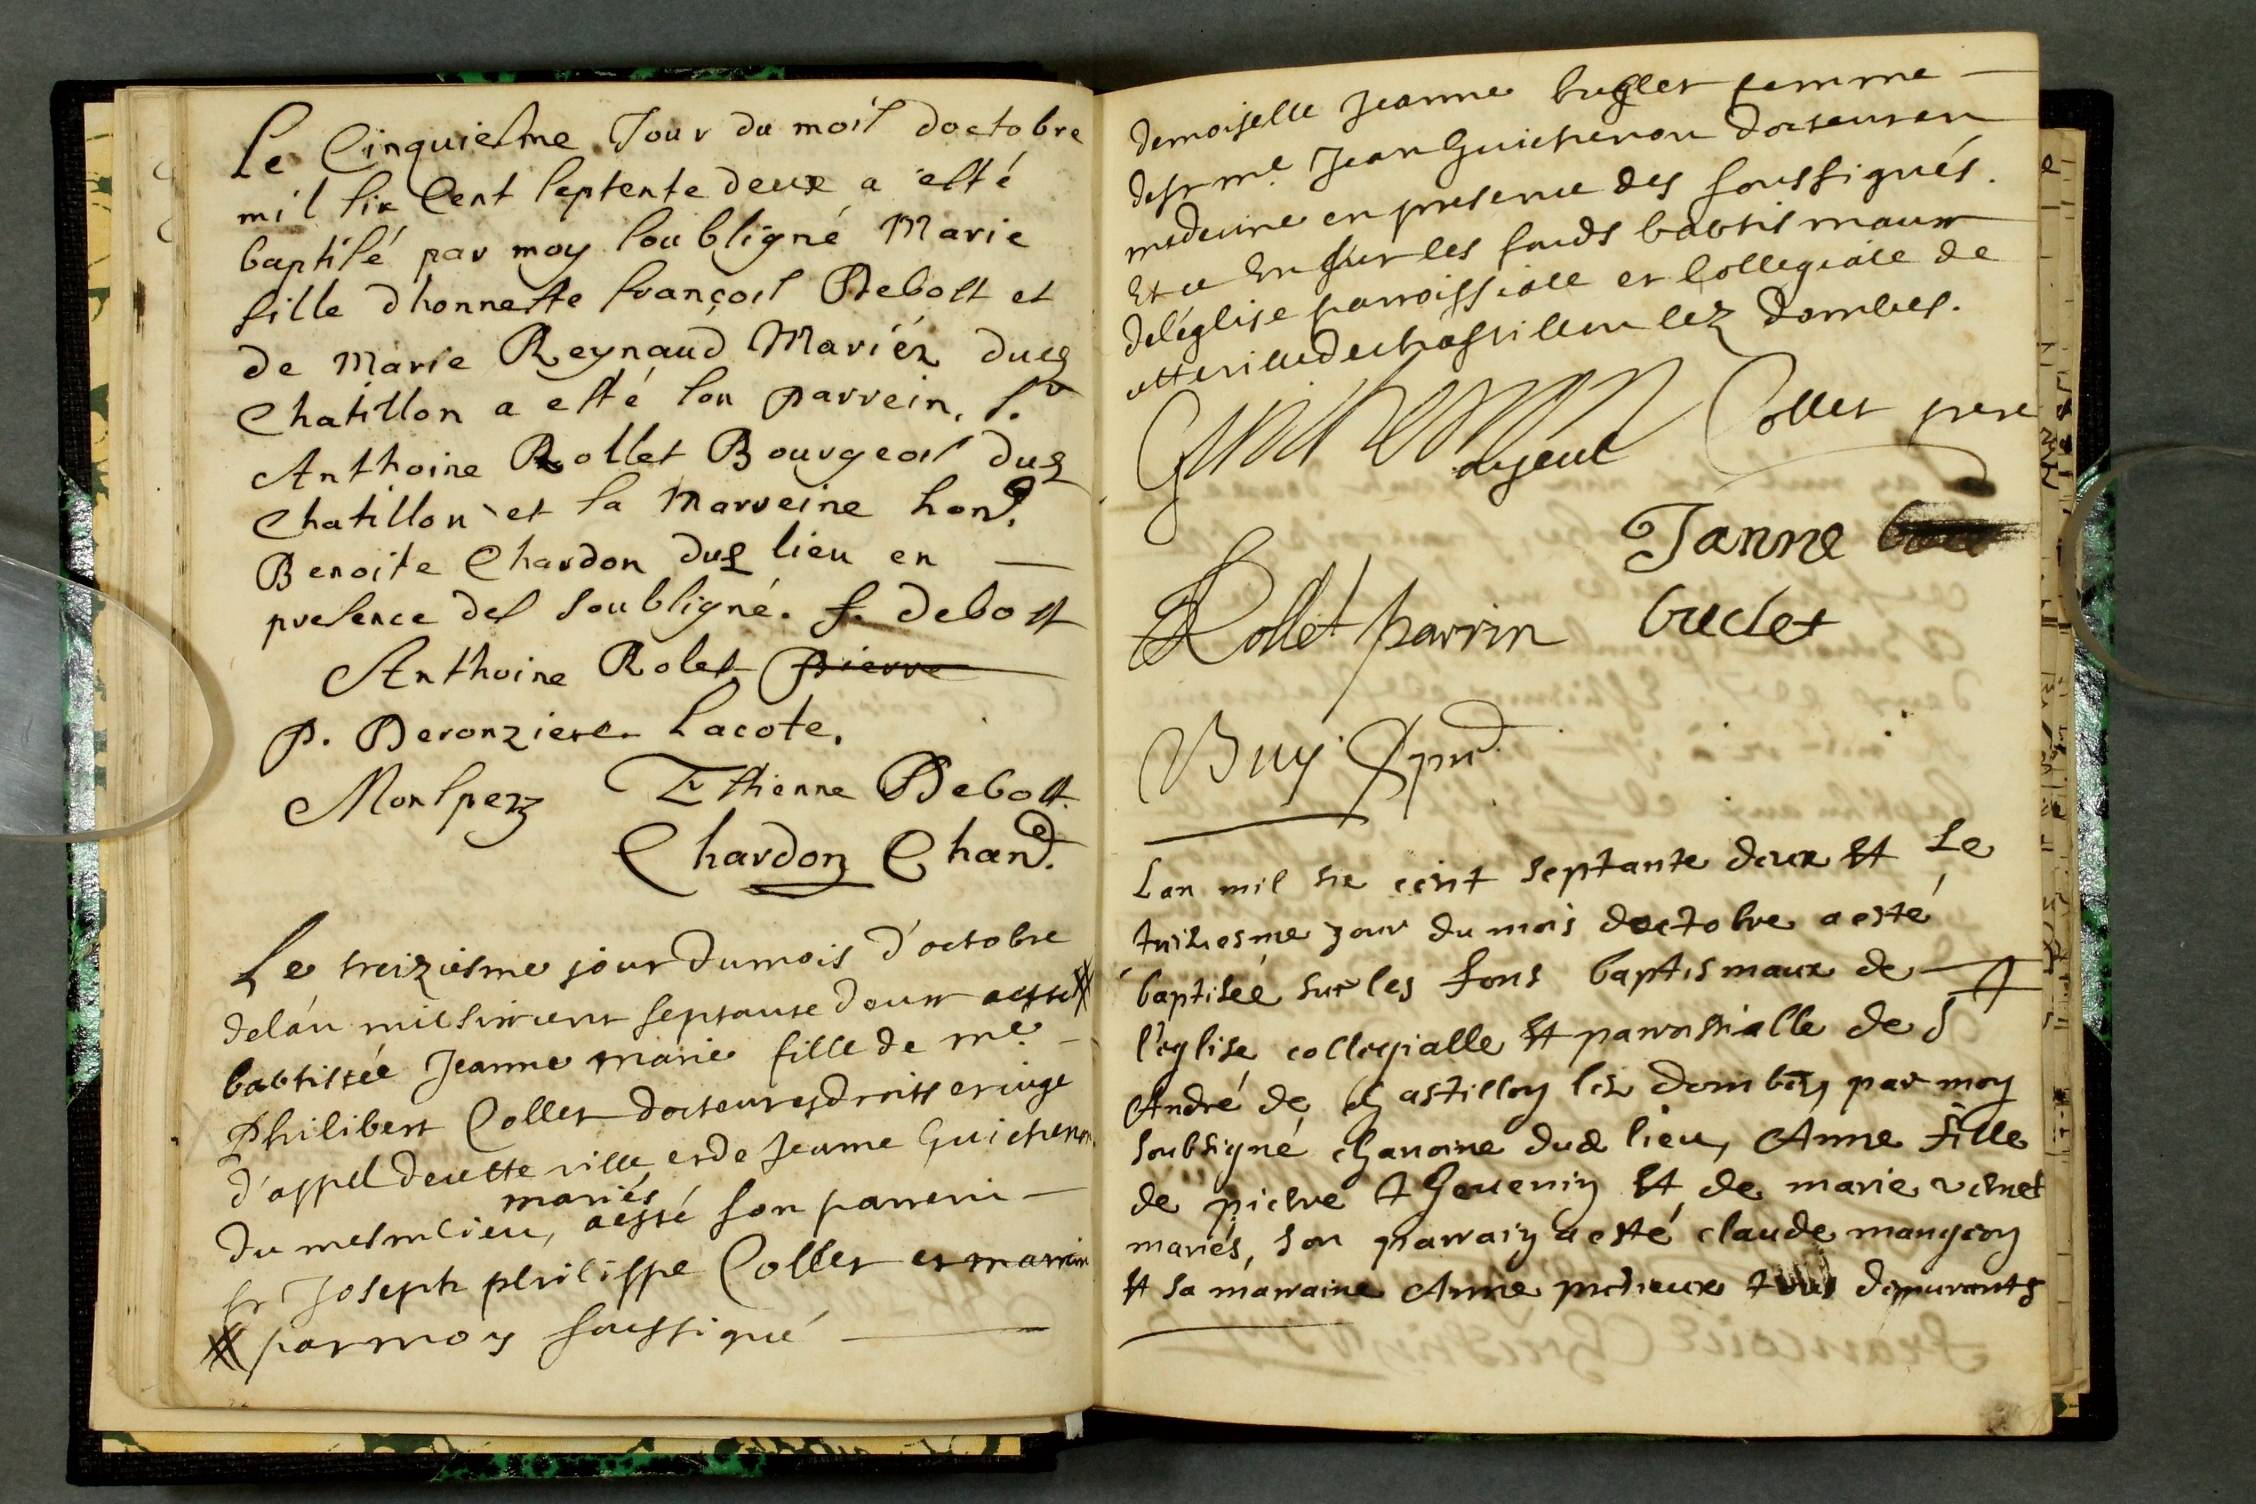 Le Cinquiesme Jour du mois doctobre
mil six Cent septente deux a esté
baptisé par moy soubsigné Marie
fille dhonneste françois Debost et
de Marie Reynaud Mariéz dud
Chatillon a esté son parrein, s.r
Anthoine Rollet Bourgeois dud
Chatillon et sa Marreine hon.e
Benoite Chardon dud lieu en
presence des soubsigné. f. debost
Anthoine Rolet Pierre
P. Deronziere Lacote.
Monspey Ethienne Debost
Chardon Chan.e
Le treiziesme jour du mois d'octobre
de lan mil six cent septante deux a esté
babtisée Jeanne marie fille de m.e
Philibert Collet docteur es droits et iuge
d'appel de cette ville et de Jeanne Guichenon
mariés
du mesme lieu, a esté son parrein
sr Joseph philippe Collet et marrin
par moy soussigné
demoiselle Jeanne buglet femme
de sr m.e Jean Guichenon docteur en
medecine en presence des soussignés.
Et ce sur les fonds babtismaux
de léglise parroissiale et Collegiale de
cette ville de chastillon lez Dombes.
Guichenon Collet pere
ayeul
Janne
buclet
Rollet parrin
Buy
Lan mil six cent septante deux et Le
treiziesme jour du mois doctobre a esté
baptisée sur les fons baptismaux de
l'eglise collegialle et parroissialle de S
André de chastillon les dombes par moy
soubsigné chanoine dud lieu, Anne fille
de pierre thevenin et de marie vernet
mariés, son parrain a esté claude mangeon
et sa marraine Anne tous demeurants